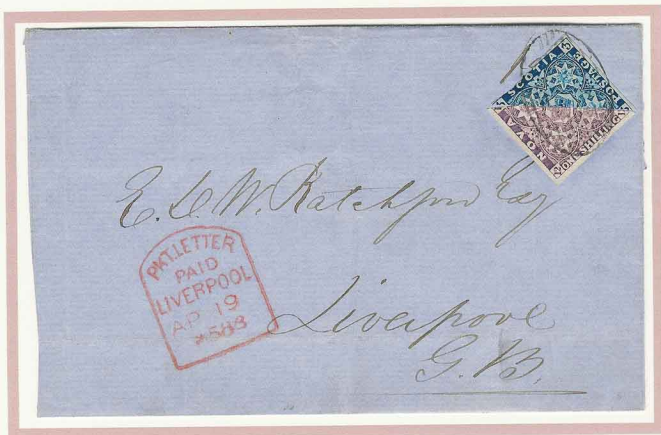 SCOTIA POSTAGE
NOVA ONE SHILLING
E. D. W. Ratchford Esq
PKT.LETTER
PAID
LIVERPOOL
AP 19
Liverpool
G.B.